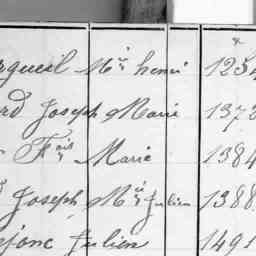 rgueil Mie henri 1254
rd Joseph Marie 1373
Fois Marie 1384
d Joseph Mie Julien 1388
ejonc Julien 1491